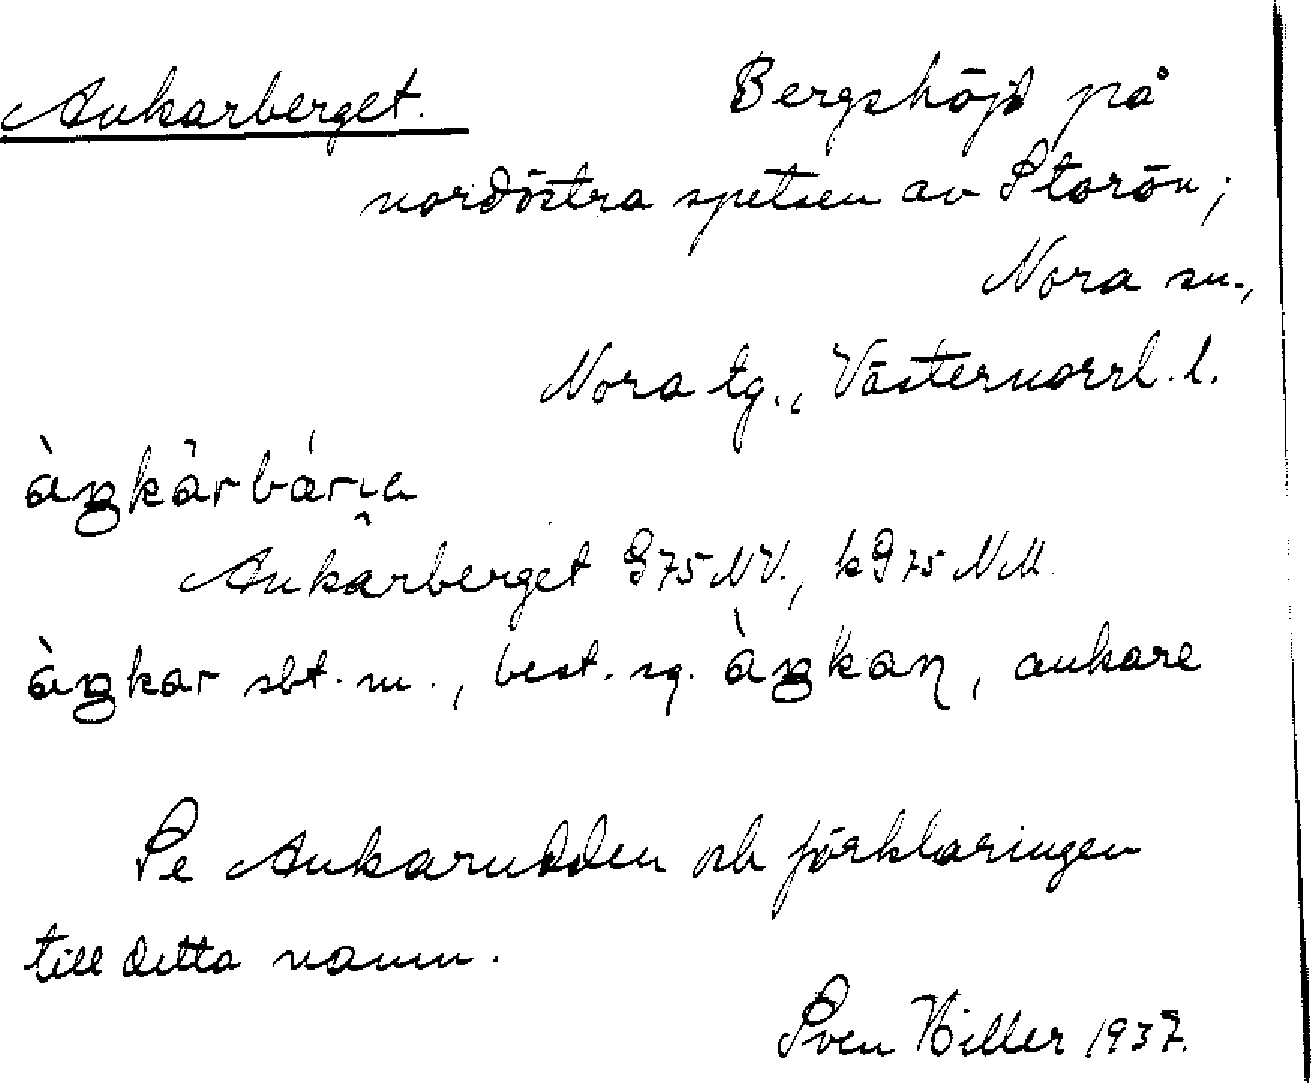 Ankarberget. Bergshöjd på
nordöstra spetsen av Storön;
Nora sn.,
Nora tg., Västernorrl. l.
Ankarberget G75 NV., kG75 NM.
sbt. m., best. sg. ankare
Se Ankarudden och förklaringen
till detta namn.
Sven Hiller 1937.